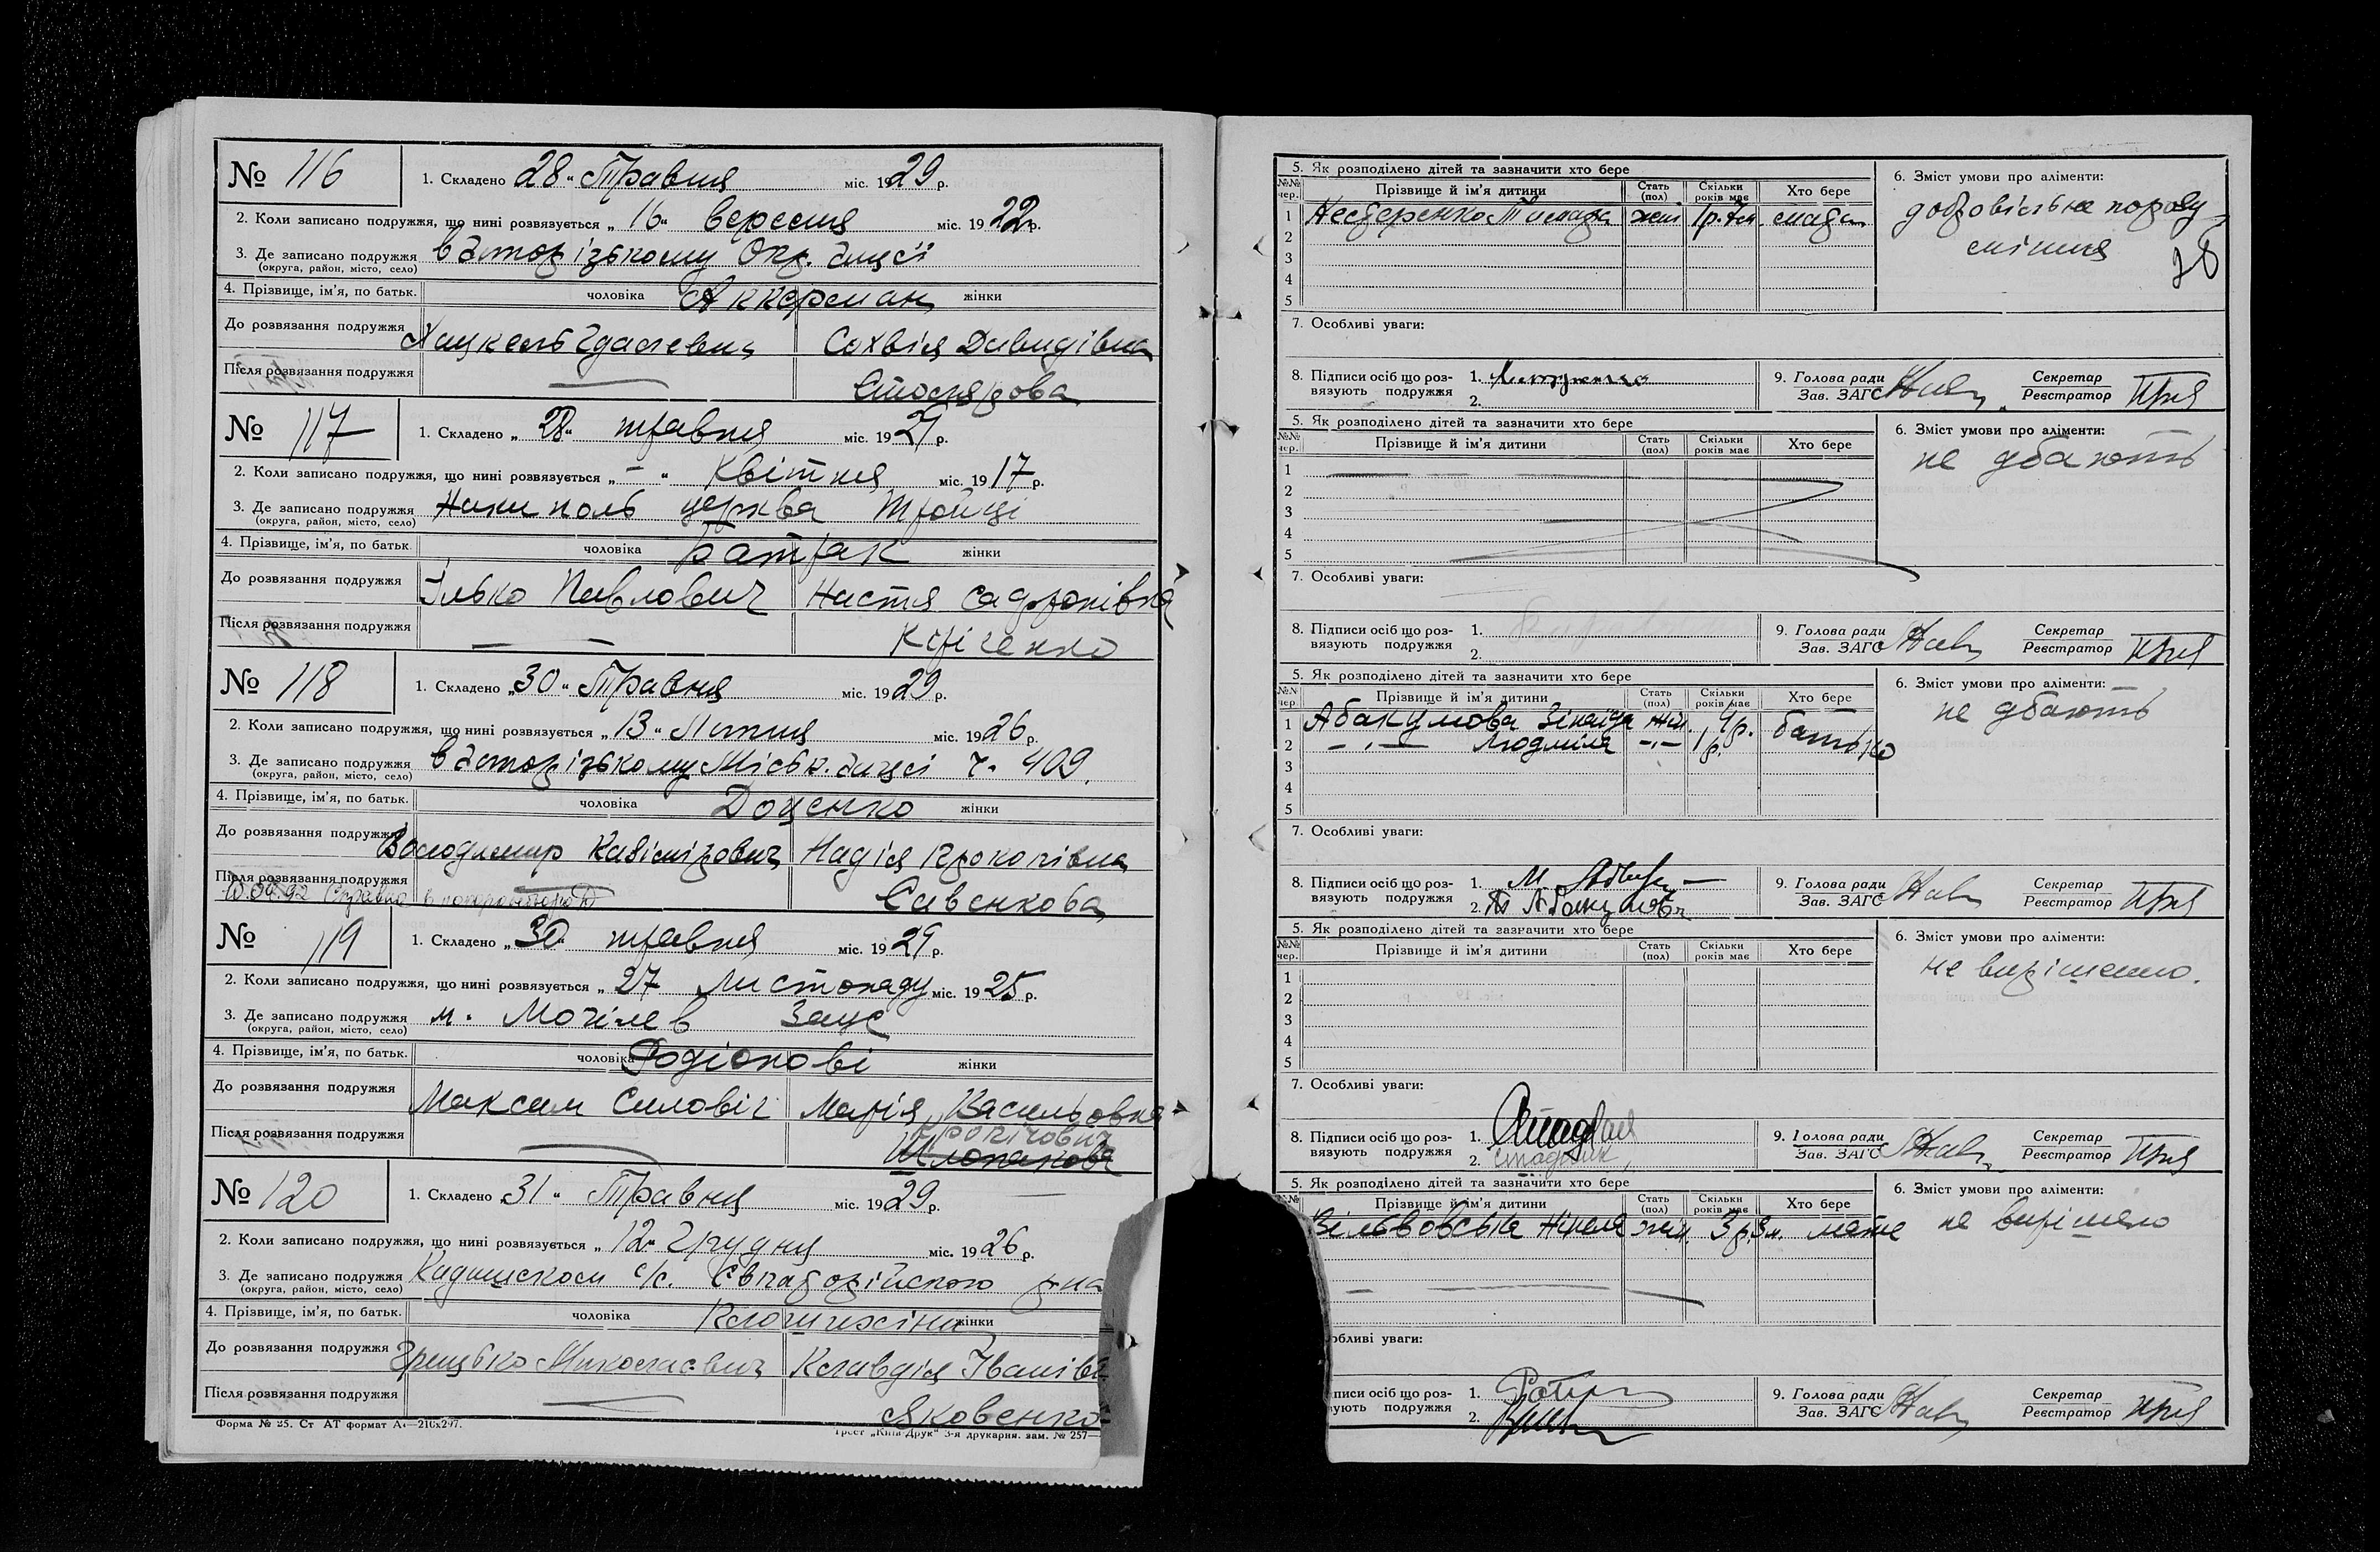 № 116
1. Складено 28 „ Травня міс. 1929 р.
2. Коли записано подружжя, що нині розвязується „ 16 “ вересня міс. 1922 р.
3. Де записано подружжя
(округа, район, місто, село)
в Запорізькому Окр. загсі
4. Прізвище, ім'я, по батьк. чоловіка Аккерман жінки
До розвязання подружжя Хацкель Гдалевич Сохвія Давидівна
Після розвязання подружжя — Столярова
№ 117
1. Складено „ 28 “ травня міс. 1929 р.
2. Коли записано подружжя, що нині розвязується „ – “ Квітня міс. 1917 р.
3. Де записано подружжя
(округа, район, місто, село)
Никиполь церква Тройці
4. Прізвище, ім'я, по батьк. чоловіка Батрак жінки
До розвязання подружжя Ілько Павлович Настя Сафронівна
Після розвязання подружжя —
№ 118
1. Складено „ 30 “ Травня міс. 1929 р.
2. Коли записано подружжя, що нині розвязується „ 13 “ Липня міс. 1926 р.
3. Де записано подружжя
(округа, район, місто, село)
в Запорізькому Міськ. загсі ч. 409.
4. Прізвище, ім'я, по батьк. чоловіка Доценко жінки
До розвязання подружжя Володимир Казімірович Надія Прокопівна
Після розвязання подружжя — Савенкова
№ 119
1. Складено „ 30 “ травня міс. 1929 р.
2. Коли записано подружжя, що нині розвязується „ 27 Листопаду міс. 1925 р.
3. Де записано подружжя
(округа, район, місто, село)
м. Могілев Загс
4. Прізвище, ім'я, по батьк. чоловіка Родіонові жінки
До розвязання подружжя Максим Силовіч Марія Васильовна
Після розвязання подружжя —
№ 120
1. Складено „ 31 “ Травня міс. 1929 р.
2. Коли записано подружжя, що нині розвязується „ 12 “ Грудня міс. 1926 р.
3. Де записано подружжя
(округа, район, місто, село)
с/с. р-на
4. Прізвище, ім'я, по батьк. чоловіка жінки
До розвязання подружжя Грицько Миколаєвич Клавдія Іванів
Після розвязання подружжя — Яковенко
Форма № 25. Ст АТ формат А4—210х297.
Трест „Київ-Друк" 3-я друкарня. зам. № 257—
5. Як розподілено дітей та зазначити хто бере
№№ чер. Прізвище й ім'я дитини Стать (пол) Скільки років має Хто бере
1 Нестеренко Тамара жін. 1р. 7м.
2
3
4
5
6. Зміст умови про аліменти:
добровільне порозу-
міння
78
7. Особливі уваги:
8. Підписи осіб що роз-
вязують подружжя
1.
2.
9. Голова ради
Зав. ЗАГС
Секретар
Реєстратор
5. Як розподілено дітей та зазначити хто бере
№№ чер. Прізвище й ім'я дитини Стать (пол) Скільки років має Хто бере
1
2
3
4
5
6. Зміст умови про аліменти:
не дбають
7. Особливі уваги:
8. Підписи осіб що роз-
вязують подружжя
1.
2.
9. Голова ради
Зав. ЗАГС
Секретар
Реєстратор
5. Як розподілено дітей та зазначити хто бере
№№ чер. Прізвище й ім'я дитини Стать (пол) Скільки років має Хто бере
1 Абакумова Зінаїда жін. 4р. батько
2 –„– Людміла –„– 1р.
3
4
5
6. Зміст умови про аліменти:
не дбають
7. Особливі уваги:
8. Підписи осіб що роз-
вязують подружжя
1. М.
2. Абакумов
9. Голова ради
Зав. ЗАГС
Секретар
Реєстратор
5. Як розподілено дітей та зазначити хто бере
№№ чер. Прізвище й ім'я дитини Стать (пол) Скільки років має Хто бере
1
2
3
4
5
6. Зміст умови про аліменти:
не вирішено.
7. Особливі уваги:
8. Підписи осіб що роз-
вязують подружжя
1.
2.
9. Голова ради
Зав. ЗАГС
Секретар
Реєстратор
5. Як розподілено дітей та зазначити хто бере
№ Прізвище й ім'я дитини Стать (пол) Скільки років має Хто бере
жін. 3р. 3м. мати
6. Зміст умови про аліменти:
не вирішено
обливі уваги:
писи осіб що роз-
ують подружжя
1.
2.
9. Голова ради
Зав. ЗАГС
Секретар
Реєстратор